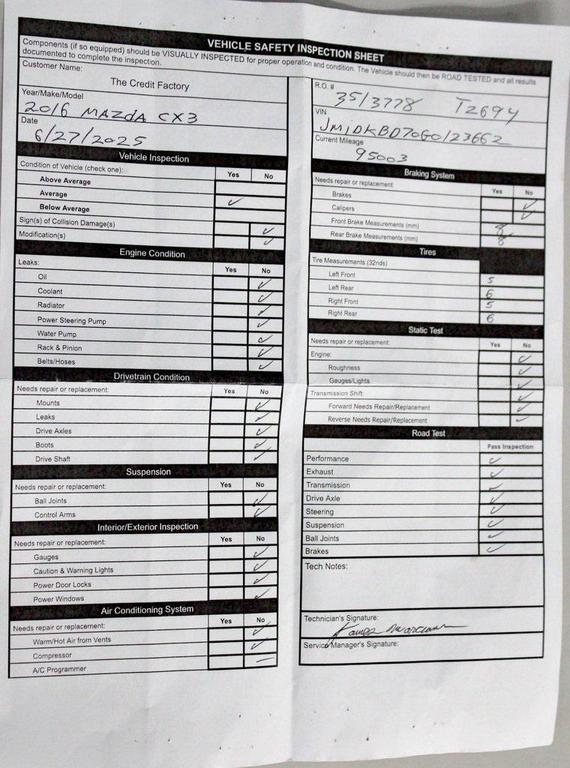 VEHICLE SAFETY INSPECTION SHEET
Components (if so equipped) should be VISUALLY INSPECTED for proper operation and condition. The Vehicle should then be ROAD TESTED and all results
documented to complete the inspection.
Customer Name:
The Credit Factory
Year/Make/Model
2016 MAZDA CX3
Date
6/27/2025
Vehicle Inspection
Condition of Vehicle (check one): Yes No
Above Average
Average ✓
Below Average
Sign(s) of Collision Damage(s) ✓
Modification(s) ✓
Engine Condition
Leaks: Yes No
Oil ✓
Coolant ✓
Radiator ✓
Power Steering Pump ✓
Water Pump ✓
Rack & Pinion ✓
Belts/Hoses ✓
Drivetrain Condition
Needs repair or replacement: Yes No
Mounts ✓
Leaks ✓
Drive Axles ✓
Boots ✓
Drive Shaft ✓
Suspension
Needs repair or replacement: Yes No
Ball Joints ✓
Control Arms ✓
Interior/Exterior Inspection
Needs repair or replacement: Yes No
Gauges ✓
Caution & Warning Lights ✓
Power Door Locks ✓
Power Windows ✓
Air Conditioning System
Needs repair or replacement: Yes No
Warm/Hot Air from Vents ✓
Compressor ✓
A/C Programmer —
R.O. #
35/3778 T2694
VIN
JM1DKBD70G0123662
Current Mileage
95003
Braking System
Needs repair or replacement: Yes No
Brakes ✓
Calipers ✓
Front Brake Measurements (mm) 8
Rear Brake Measurements (mm) 8
Tires
Tire Measurements (32nds)
Left Front 5
Left Rear 6
Right Front 5
Right Rear 6
Static Test
Needs repair or replacement: Yes No
Engine: ✓
Roughness ✓
Gauges/Lights ✓
Transmission Shift: ✓
Forward Needs Repair/Replacement ✓
Reverse Needs Repair/Replacement ✓
Road Test
Pass Inspection
Performance ✓
Exhaust ✓
Transmission ✓
Drive Axle ✓
Steering ✓
Suspension ✓
Ball Joints ✓
Brakes ✓
Tech Notes:
Technician's Signature:
Service Manager's Signature: